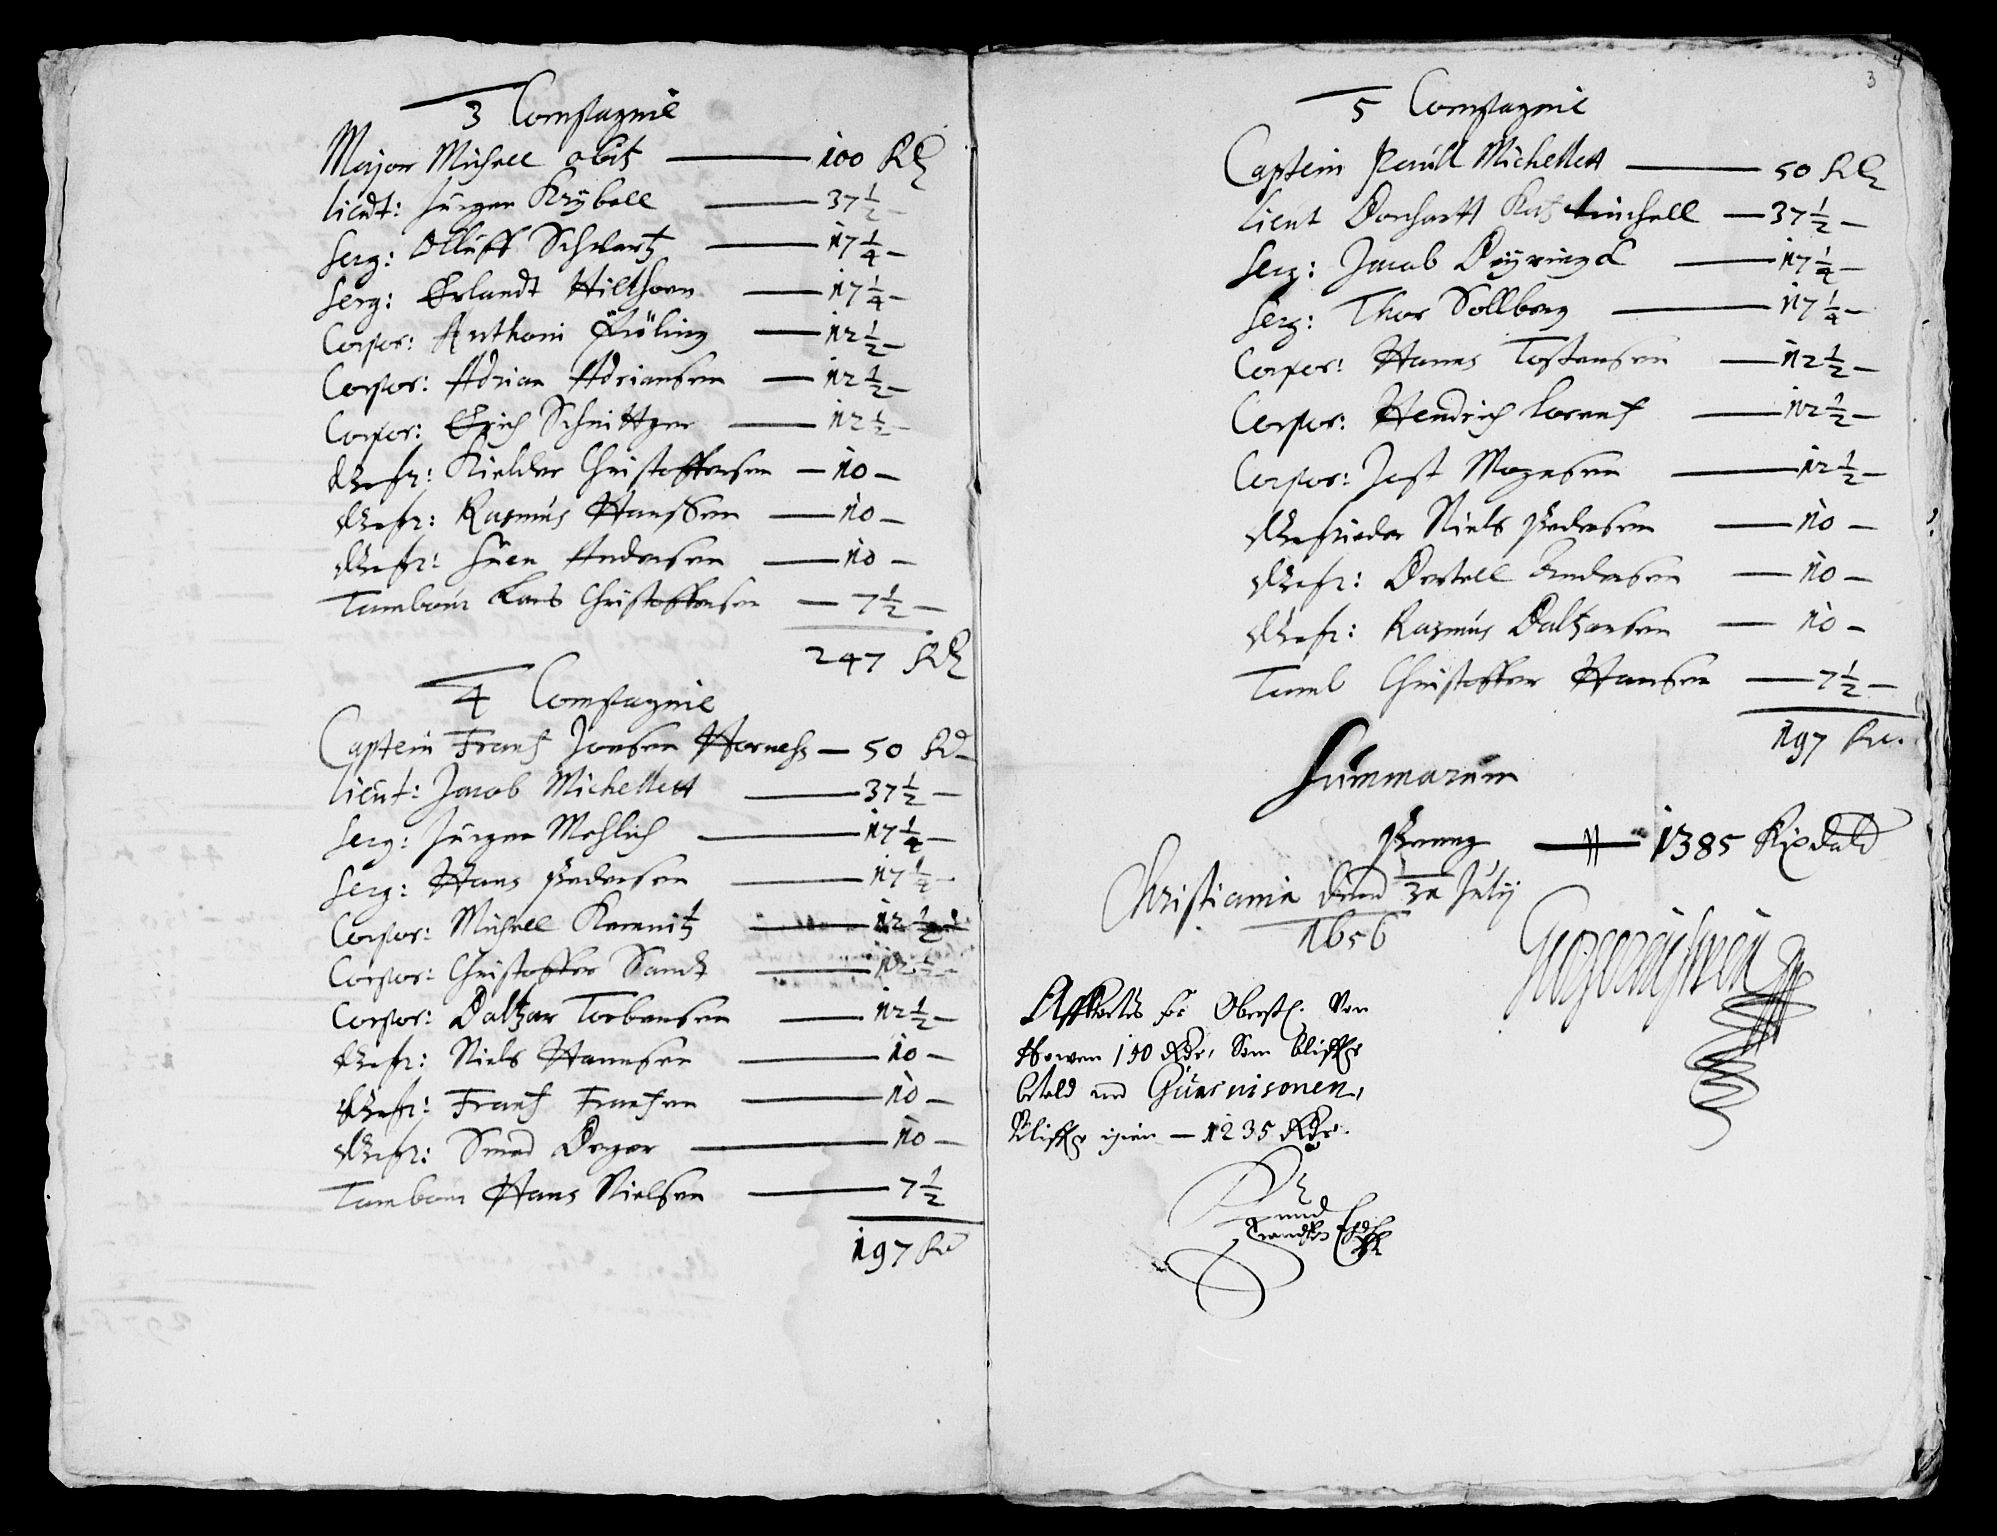 3 Compagnie
Major Michell Obitz — 100 Rd
Lieut: Jürgen Krybell — 37 1/2 —
Serg: Olluff Schwartz — 17 1/4 —
Serg: Erlandt Hilthorn — 17 1/4 —
Corpor: Anthoni Fröling — 12 1/2 —
Corpor: Adrian Adriansen — 12 1/2 —
Corpor: Erich Schnittger — 12 1/2 —
Gefr: Kielder Christoffersen — 10 —
Gefr: Rasmus Hanssen — 10 —
Gefr: Suen Andersen — 10 —
Tambour Lars Christoffersen — 7 1/2 —
247 Rd
4 Compagnie
Captein Frans Jonsen Horness — 50 Rd
Lieut: Jacob Michelett — 37 1/2 —
Serg: Jürgen Mehlich — 17 1/4 —
Serg: Hans Pedersen — 17 1/4 —
Corpor: Michell Kemnitz — 12 1/2
Corpor: Christoffer Sandt — 12 1/2 —
Corpor: Baltzar Torbensen — 12 1/2 —
Gefr: Niels Hannsen — 10 —
Gefr: Frans Fransen — 10 —
Gefr: Smed — 10 —
Tambour Hans Nielsen — 7 1/2
197 Rd
3
5 Compagnie
Captein Paull Michelett — 50 Rd
Lieut — 37 1/2 —
Serg: Jacob — 17 1/4 —
Serg: Thor Sollberg — 17 1/4 —
Corpor: Hanns Tostensen — 12 1/2 —
Corpor: Hendrich Lorens — 12 1/2 —
Corpor: Jost Mogensen — 12 1/2 —
Gefrieder Niels Pedersen — 10 —
Gefr: Bertell Andersen — 10 —
Gefr: Rasmus Baltzersen — 10 —
Tamb Christoffer Hansen — 7 1/2 —
197 Rd.
Summarum
Peng — 1385 Rixdald
Christiania denn July
1656
Affkortis for Oberstl. Von
Howen 150 Rdr, Som bliffr
betald ved Guarnisonen,
Bliffr igien — 1235 Rdr.